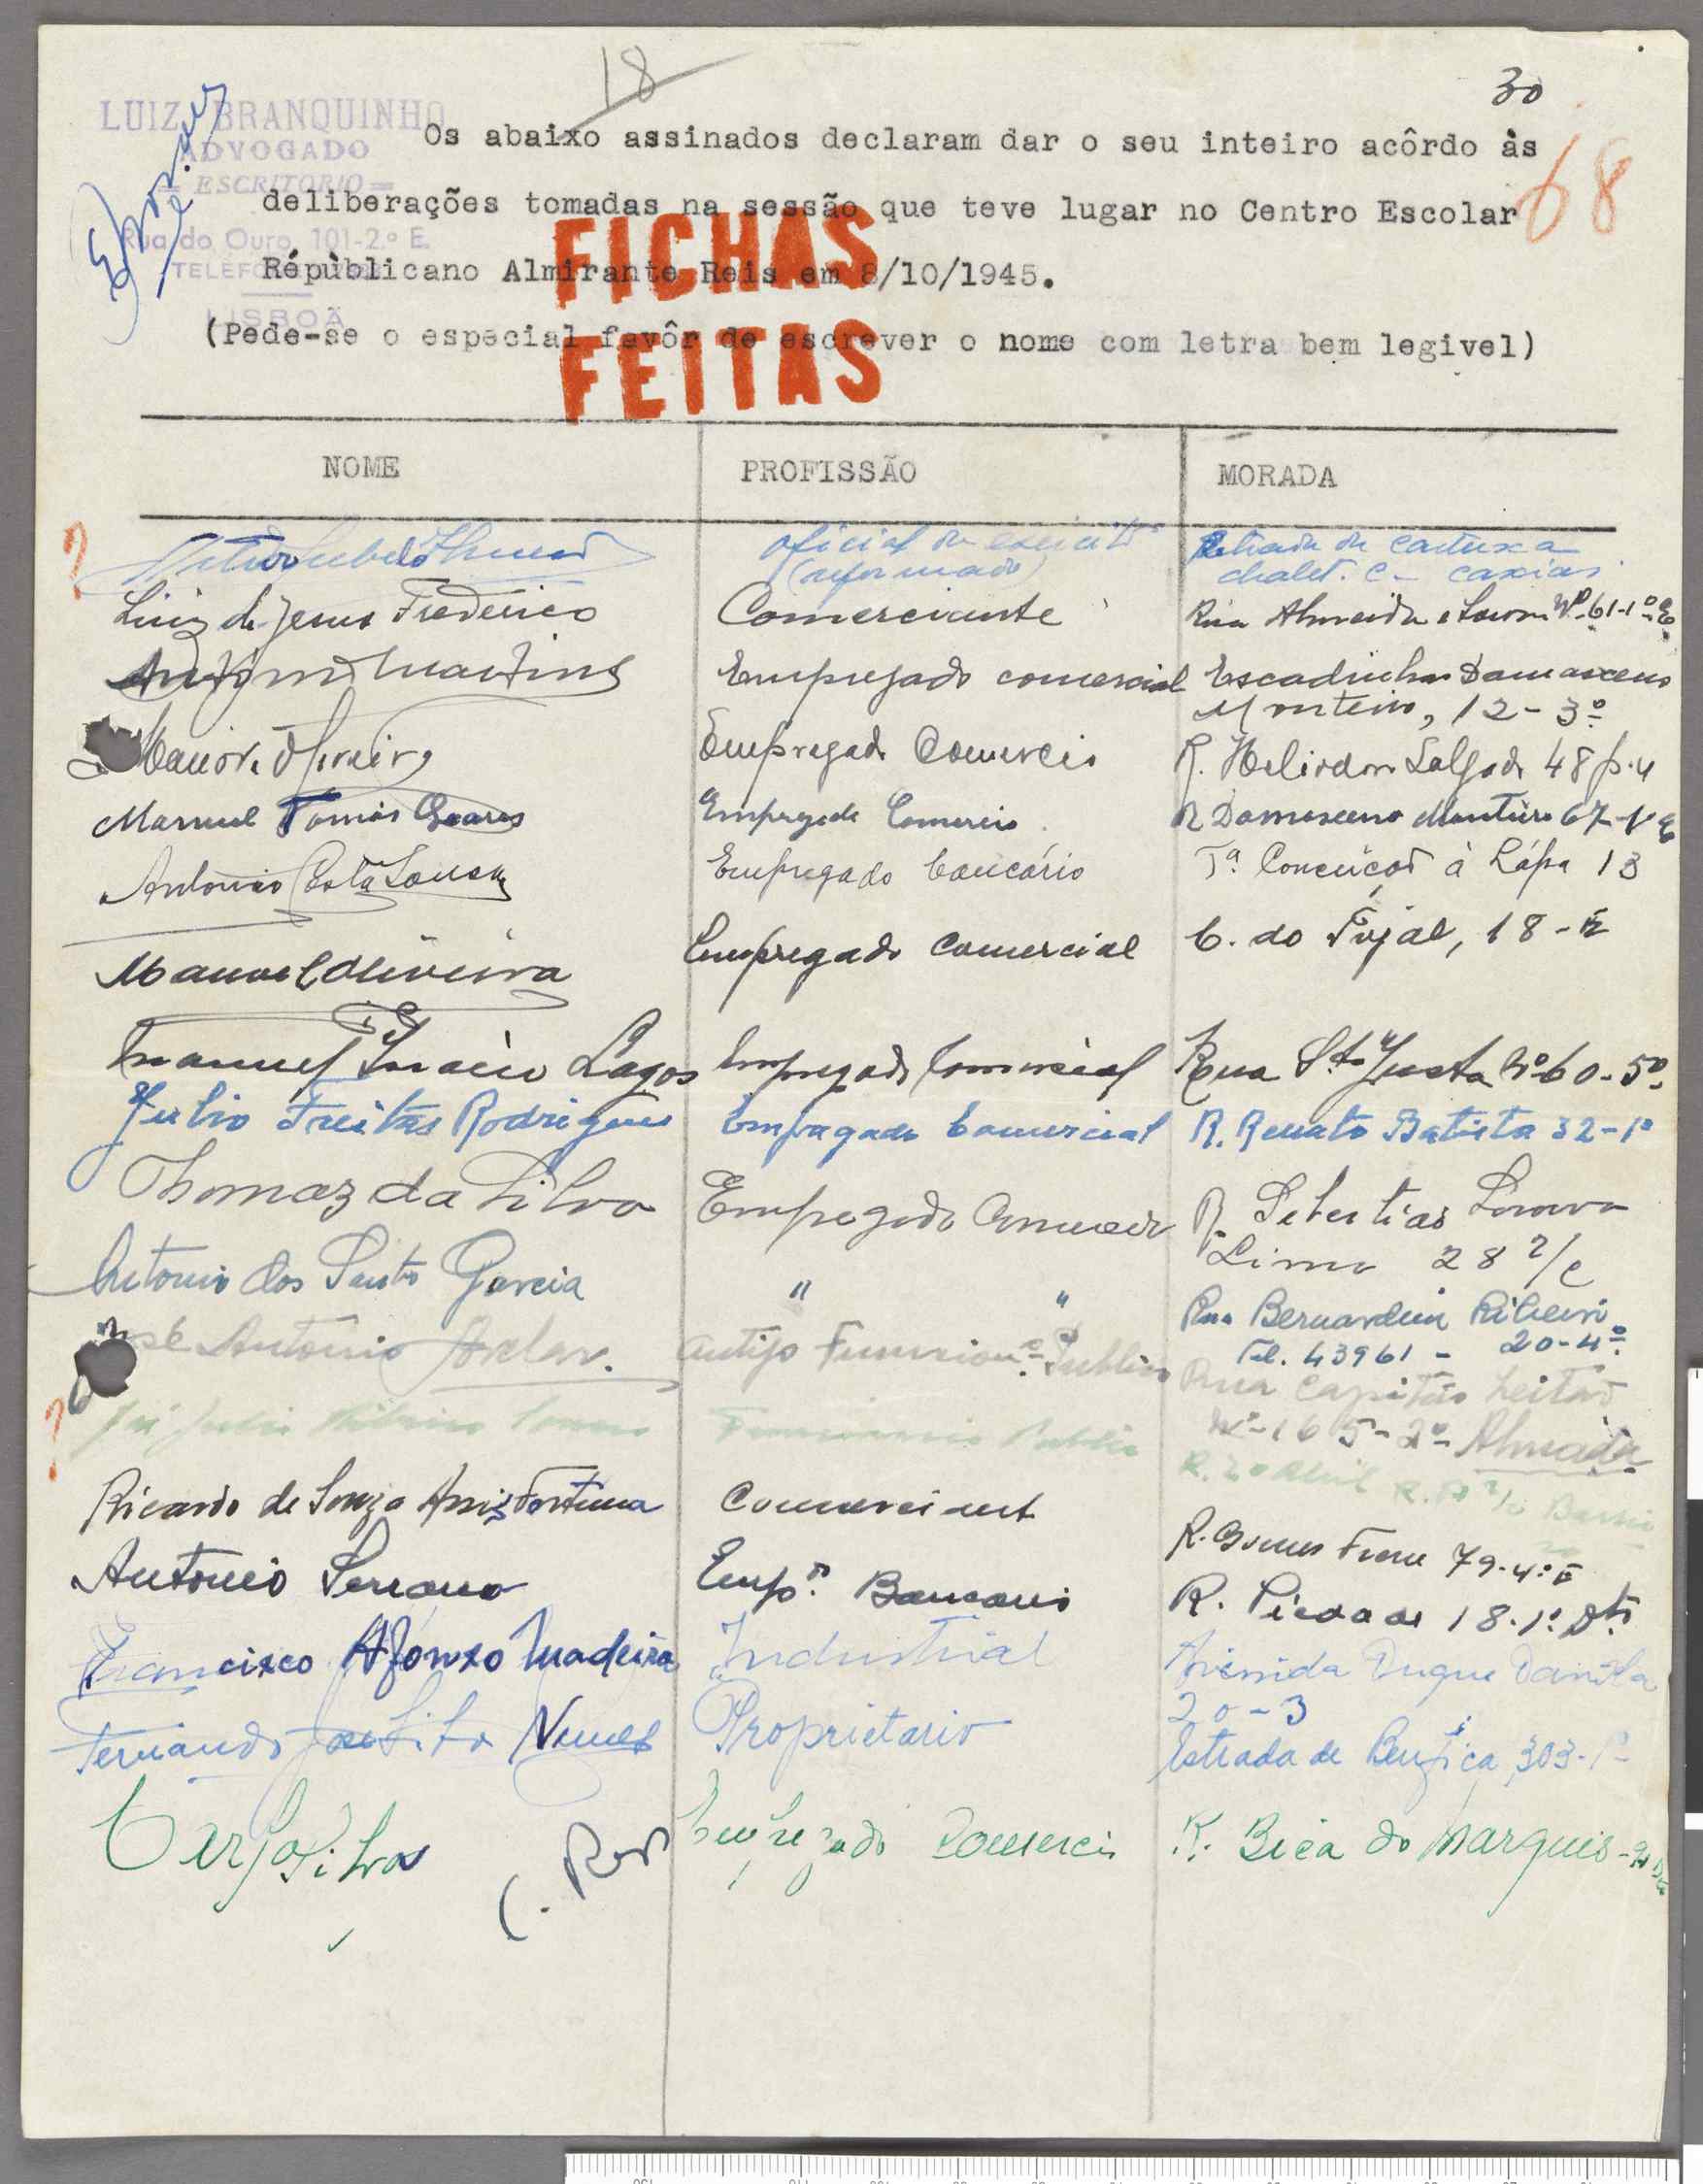 18
30
68
LUIZ BRANQUINHO
ADVOGADO
= ESCRITORIO =
Rua do Ouro, 101-2.º E.
LISBOA
Os abaixo assinados declaram dar o seu inteiro acôrdo às
deliberações tomadas na sessão que teve lugar no Centro Escolar
Républicano Almirante Reis em 8/10/1945.
(Pede-se o especial favôr de escrever o nome com letra bem legivel)
FICHAS
FEITAS
NOME PROFISSÃO MORADA
? oficial do exercito
(reformado)
Estrada da Cartuxa
chalet. C- Caxias.
Luiz de Jesus Frederico Comerciante Rua Almeida e Sousa Nº 61-1º E
Antonio Martins Empregado comercial Escadinhas Damasceno
Monteiro, 12-3º
Empregado Comercio R. Heliodoro Salgado 48
Manuel Tomás Soares Empregado Comercio R Damasceno Monteiro 67-1º E
Antonio Costa Sousa Empregado bancário Tª Conceição à Lápa 13
Manuel Oliveira Empregado Comercial C. do Tojal, 18-
Manuel Inácio Lagos Empregado Comercial Rua Stª Justa Nº 60-5º
Julio Freitas Rodrigues Empregado Comercial R. Renato Batista 32-1º
Thomaz da Silva Empregado Comercio R.
Lima 28 r/c
Antonio dos Santos Garcia " " Rua Bernardim Ribeiro
Tel. 43961 - 20-4º
José Antonio Avelar. Antigo Funcionº Publico Rua Capitão Leitão
Nº-165-2º- Almada
? Funcionario Publico
Ricardo de Souza Assis Fortuna Comerciante R. Gomes Freire 79-4º E
Antonio Serrano Empº Bancario R. Piedade 18-1º Dtº
Francisco Afonso Madeira Industrial Avenida Duque Davila
20-3
Fernando José Nunes Proprietario Estrada de Benfica, 303-1º
Silva Empregado Comercio R. Bica do Marquês